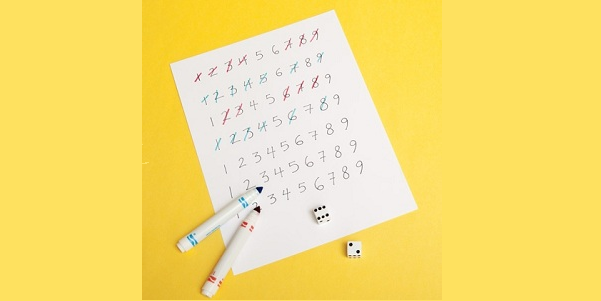 1 2 3 4 5 6 7 8 9
1 2 3 4 5 6 7 8 9
1 2 3 4 5 6 7 8 9
1 2 3 4 5 6 7 8 9
1 2 3 4 5 6 7 8 9
1 2 3 4 5 6 7 8 9
1 2 3 4 5 6 7 8 9